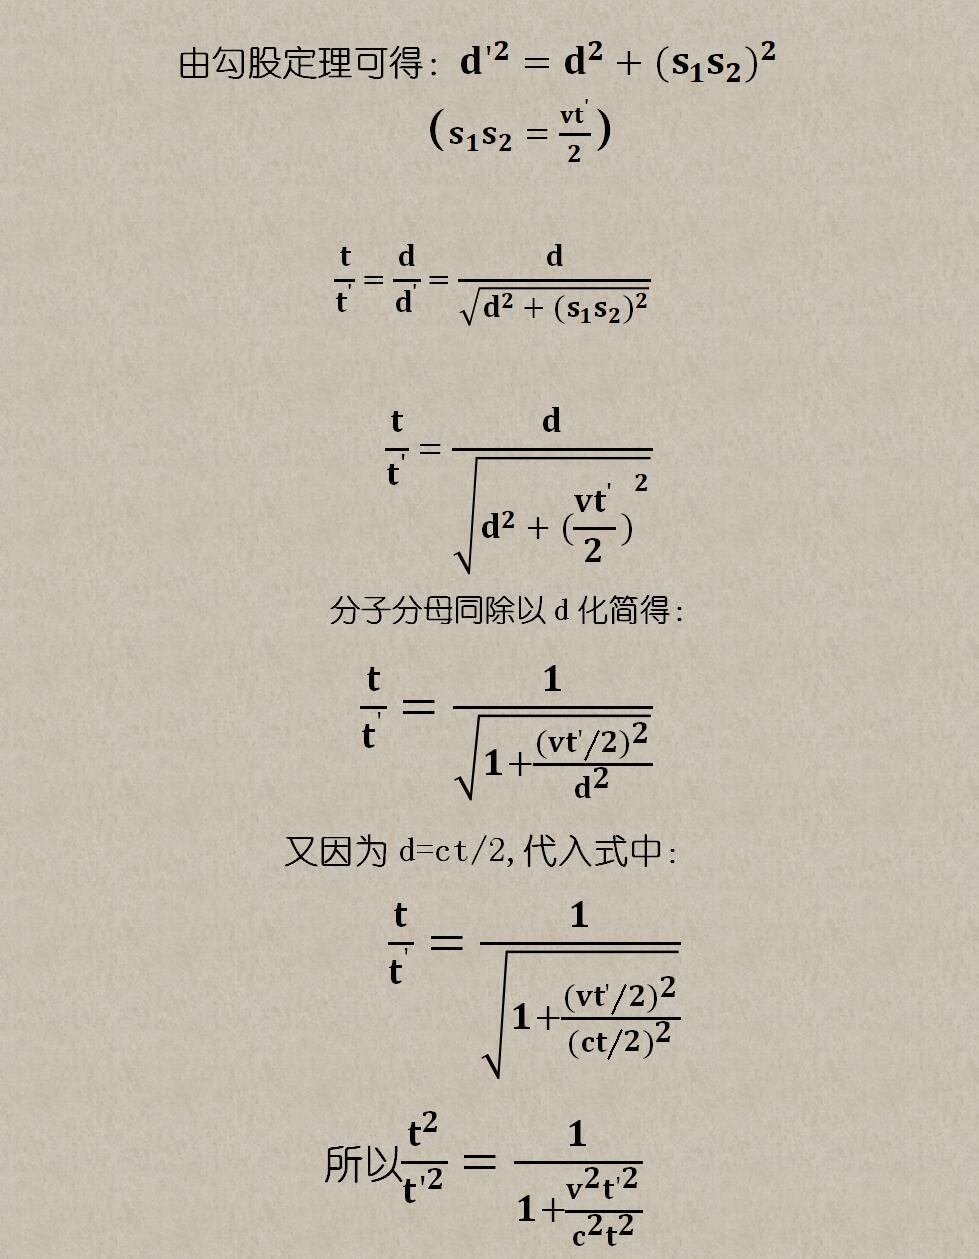 由勾股定理可得: d'² = d² + (s₁s₂)²
(s₁s₂ = vt'/2)
t/t' = d/d' = d/√(d² + (s₁s₂)²)
t/t' = d/√(d² + (vt'/2)²)
分子分母同除以 d 化简得:
t/t' = 1/√(1+(vt'/2)²/d²)
又因为 d=ct/2,代入式中:
t/t' = 1/√(1+(vt'/2)²/(ct/2)²)
所以 t²/t'² = 1/(1+v²t'²/c²t²)